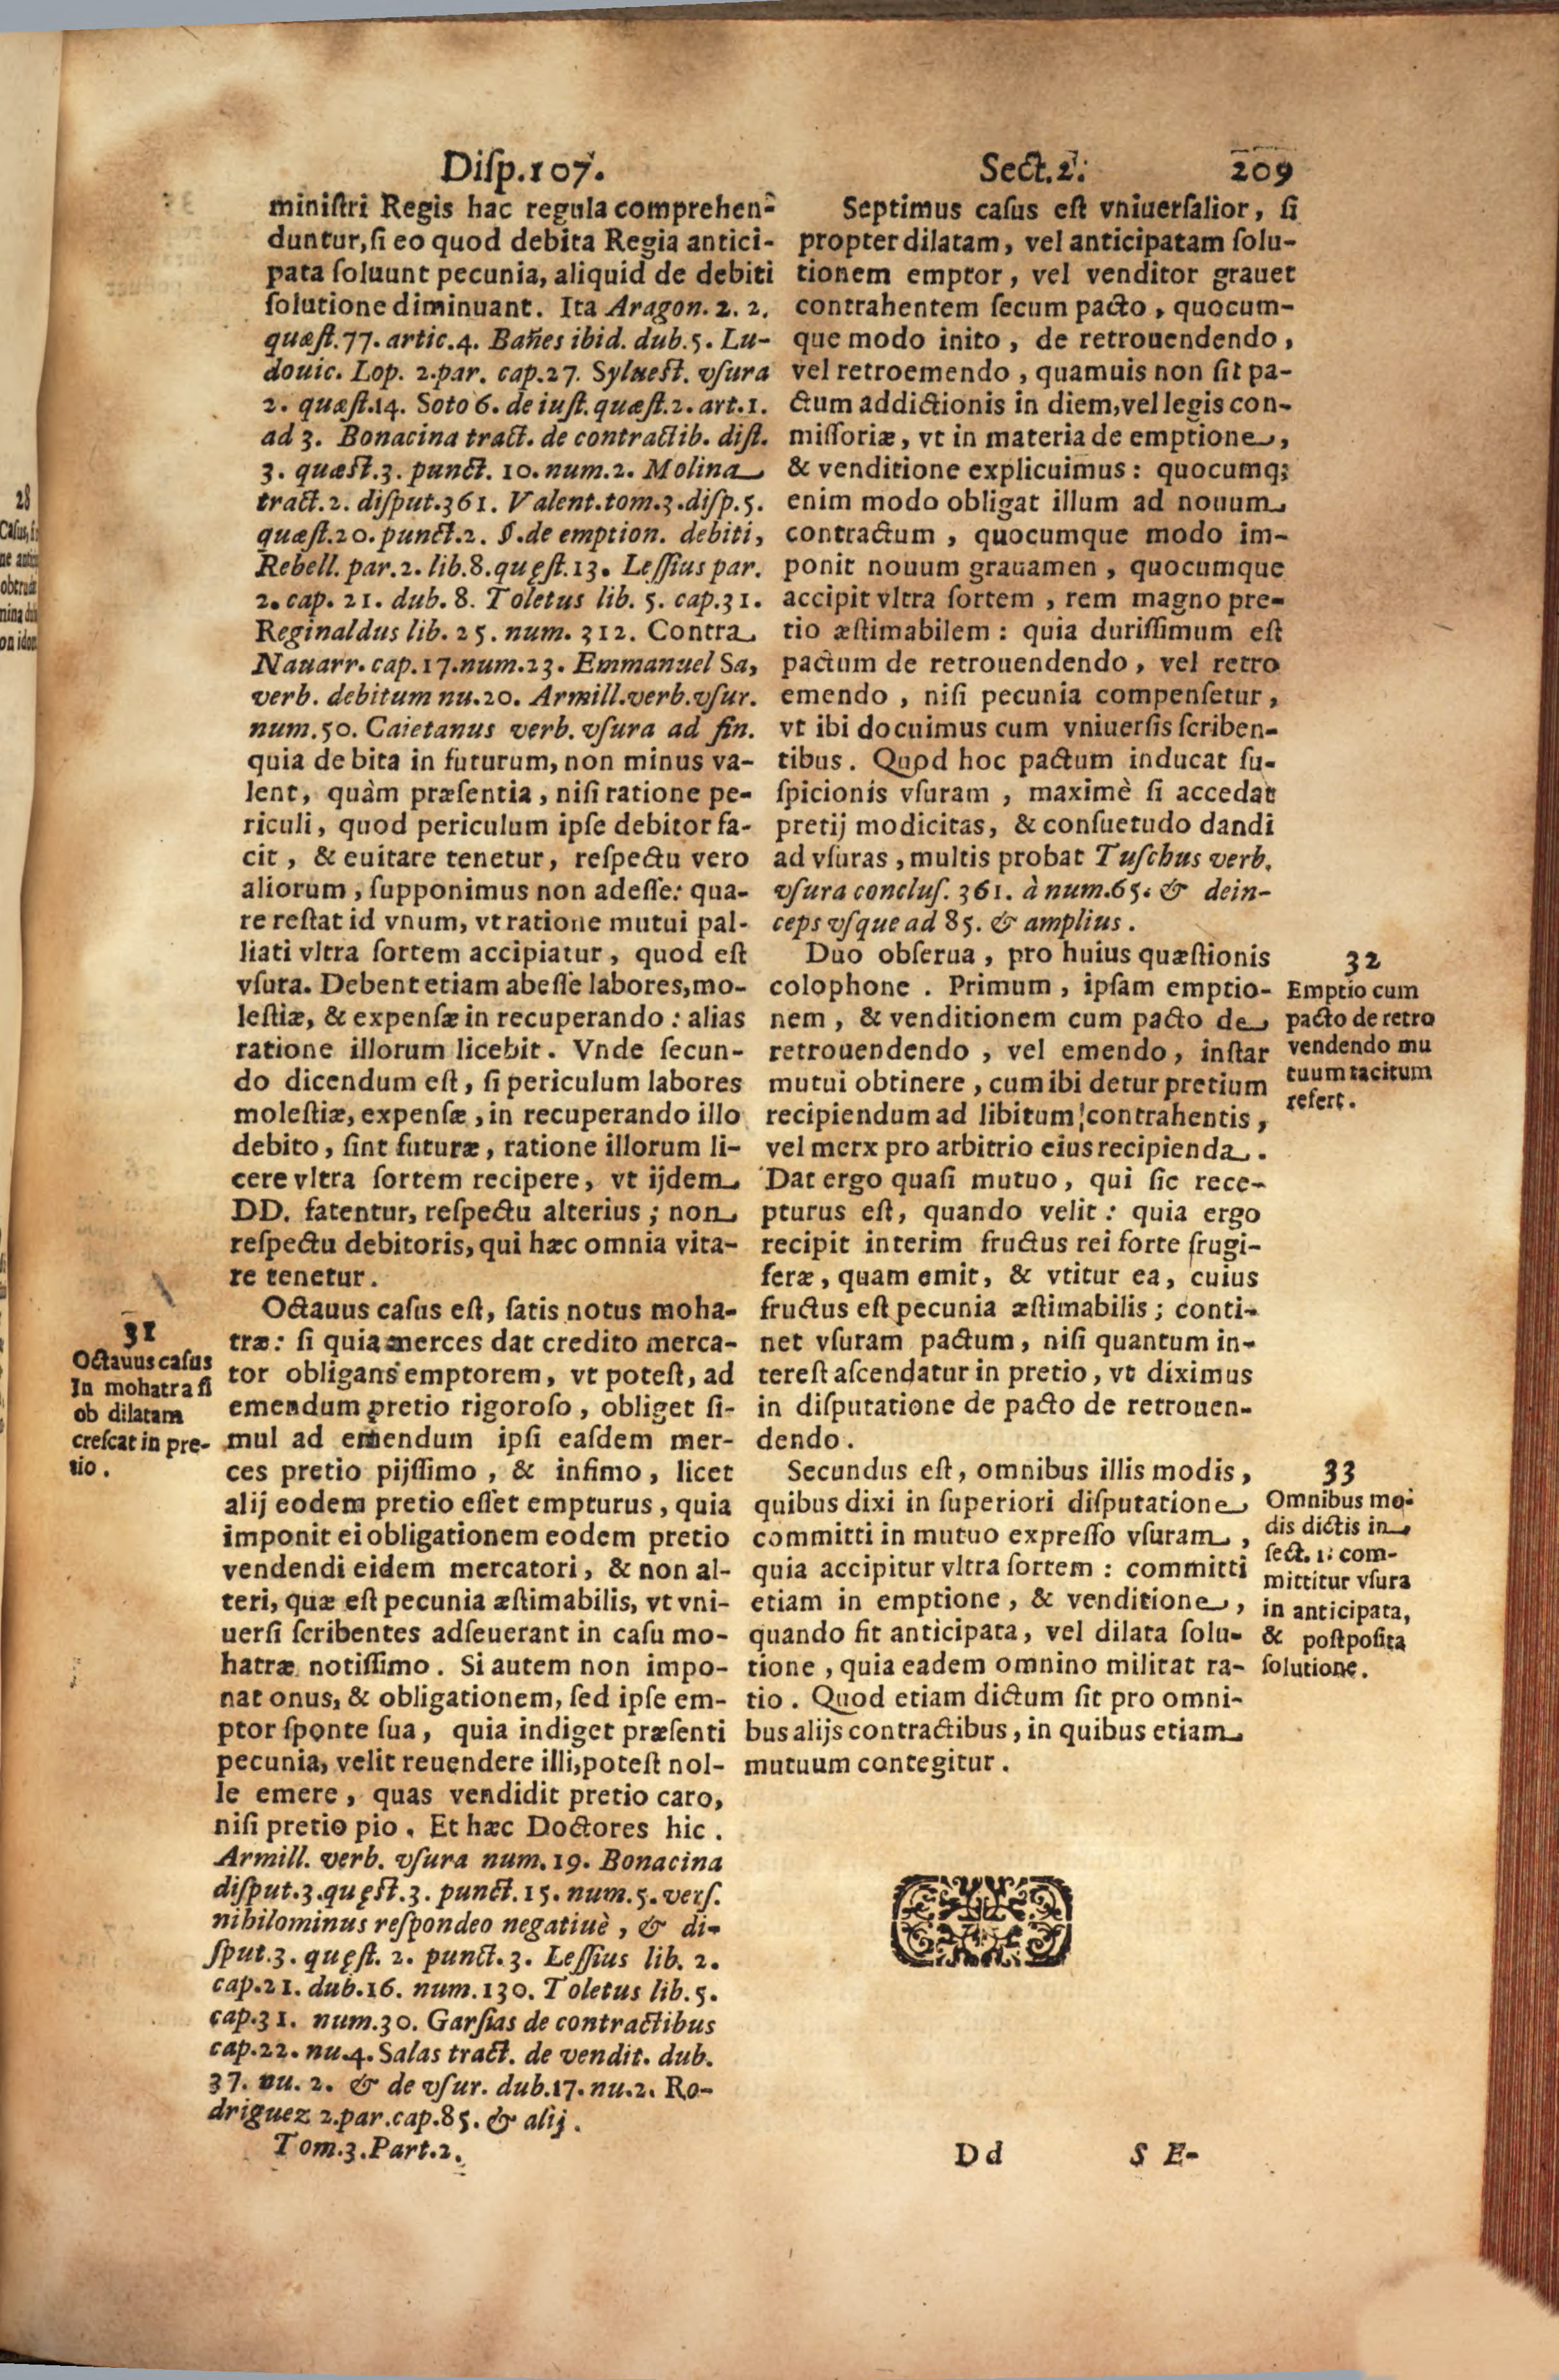 Disp.107. Sect.2. 209
ministri Regis hac regula comprehen-
duntur, si eo quod debita Regia antici-
pata soluunt pecunia, aliquid de debiti
solutione diminuant. Ita Aragon. 2. 2.
quæst.77. artic.4. Bañes ibid. dub.5. Lu-
douic. Lop. 2.par. cap.27. Syluest. vsura
2. quæst.14. Soto 6. de iust. quæst.2. art.1.
ad 3. Bonacina tract. de contractib. dist.
3. quæst.3. punct. 10. num.2. Molina
tract.2. disput.361. Valent.tom.3.disp.5.
quæst.20. punct.2. §.de emption. debiti,
Rebell. par.2. lib.8.quęst.13. Lessius par.
2. cap. 21. dub. 8. Toletus lib. 5. cap.31.
Reginaldus lib. 25. num. 312. Contra
Nauarr. cap.17.num.23. Emmanuel Sa,
verb. debitum nu.20. Armill.verb.vsur.
num.50. Caietanus verb. vsura ad fin.
quia debita in futurum, non minus va-
lent, quàm præsentia, nisi ratione pe-
riculi, quod periculum ipse debitor fa-
cit, & euitare tenetur, respectu vero
aliorum, supponimus non adesse: qua-
re restat id vnum, vt ratione mutui pal-
liati vltra sortem accipiatur, quod est
vsura. Debent etiam abesse labores, mo-
lestiæ, & expensæ in recuperando: alias
ratione illorum licebit. Vnde secun-
do dicendum est, si periculum labores
molestiæ, expensæ, in recuperando illo
debito, sint futuræ, ratione illorum li-
cere vltra sortem recipere, vt ijdem
DD. fatentur, respectu alterius; non
respectu debitoris, qui hæc omnia vita-
re tenetur.
31
Octauus casus
In mohatra si
ob dilatam
crescat in pre-
tio.
Octauus casus est, satis notus moha-
træ: si quia merces dat credito merca-
tor obligans emptorem, vt potest, ad
emendum pretio rigoroso, obliget si-
mul ad emendum ipsi easdem mer-
ces pretio pijssimo, & infimo, licet
alij eodem pretio esset empturus, quia
imponit ei obligationem eodem pretio
vendendi eidem mercatori, & non al-
teri, quæ est pecunia æstimabilis, vt vni-
uersi scribentes adseuerant in casu mo-
hatræ notissimo. Si autem non impo-
nat onus, & obligationem, sed ipse em-
ptor sponte sua, quia indiget præsenti
pecunia, velit reuendere illi, potest nol-
le emere, quas vendidit pretio caro,
nisi pretio pio. Et hæc Doctores hic.
Armill. verb. vsura num.19. Bonacina
disput.3.quęst.3. punct.15.num.5.vers.
nihilominus respondeo negatiuè, & di-
sput.3. quęst. 2. punct.3. Lessius lib. 2.
cap.21. dub.16. num.130. Toletus lib.5.
cap.31. num.30. Garsias de contractibus
cap.22. nu.4. Salas tract. de vendit. dub.
37. nu. 2. & de vsur. dub.17. nu.2. Ro-
driguez 2.par.cap.85. & alij.
Tom.3.Part.2.
Septimus casus est vniuersalior, si
propter dilatam, vel anticipatam solu-
tionem emptor, vel venditor grauet
contrahentem secum pacto, quocum-
que modo inito, de retrouendendo,
vel retroemendo, quamuis non sit pa-
ctum addictionis in diem, vel legis con-
missoriæ, vt in materia de emptione,
& venditione explicuimus: quocumq;
enim modo obligat illum ad nouum
contractum, quocumque modo im-
ponit nouum grauamen, quocumque
accipit vltra sortem, rem magno pre-
tio æstimabilem: quia durissimum est
pactum de retrouendendo, vel retro
emendo, nisi pecunia compensetur,
vt ibi docuimus cum vniuersis scriben-
tibus. Quod hoc pactum inducat su-
spicionis vsuram, maximè si accedat
pretij modicitas, & consuetudo dandi
ad vsuras, multis probat Tuschus verb.
vsura conclus. 361. à num.65. & dein-
ceps vsque ad 85. & amplius.
Duo obserua, pro huius quæstionis
colophone. Primum, ipsam emptio-
nem, & venditionem cum pacto de
retrouendendo, vel emendo, instar
mutui obtinere, cum ibi detur pretium
recipiendum ad libitum contrahentis,
vel merx pro arbitrio eius recipienda.
Dat ergo quasi mutuo, qui sic rece-
pturus est, quando velit: quia ergo
recipit interim fructus rei forte frugi-
feræ, quam emit, & vtitur ea, cuius
fructus est pecunia æstimabilis; conti-
net vsuram pactum, nisi quantum in-
terest ascendatur in pretio, vt diximus
in disputatione de pacto de retrouen-
dendo.
32
Emptio cum
pacto de retro
vendendo mu
tuum tacitum
refert.
Secundus est, omnibus illis modis,
quibus dixi in superiori disputatione
committi in mutuo expresso vsuram,
quia accipitur vltra sortem: committi
etiam in emptione, & venditione,
quando fit anticipata, vel dilata solu-
tione, quia eadem omnino militat ra-
tio. Quod etiam dictum sit pro omni-
bus alijs contractibus, in quibus etiam
mutuum contegitur.
33
Omnibus mo-
dis dictis in
sect. 1. com-
mittitur vsura
in anticipata,
& postposita
solutione.
Dd S E-
28